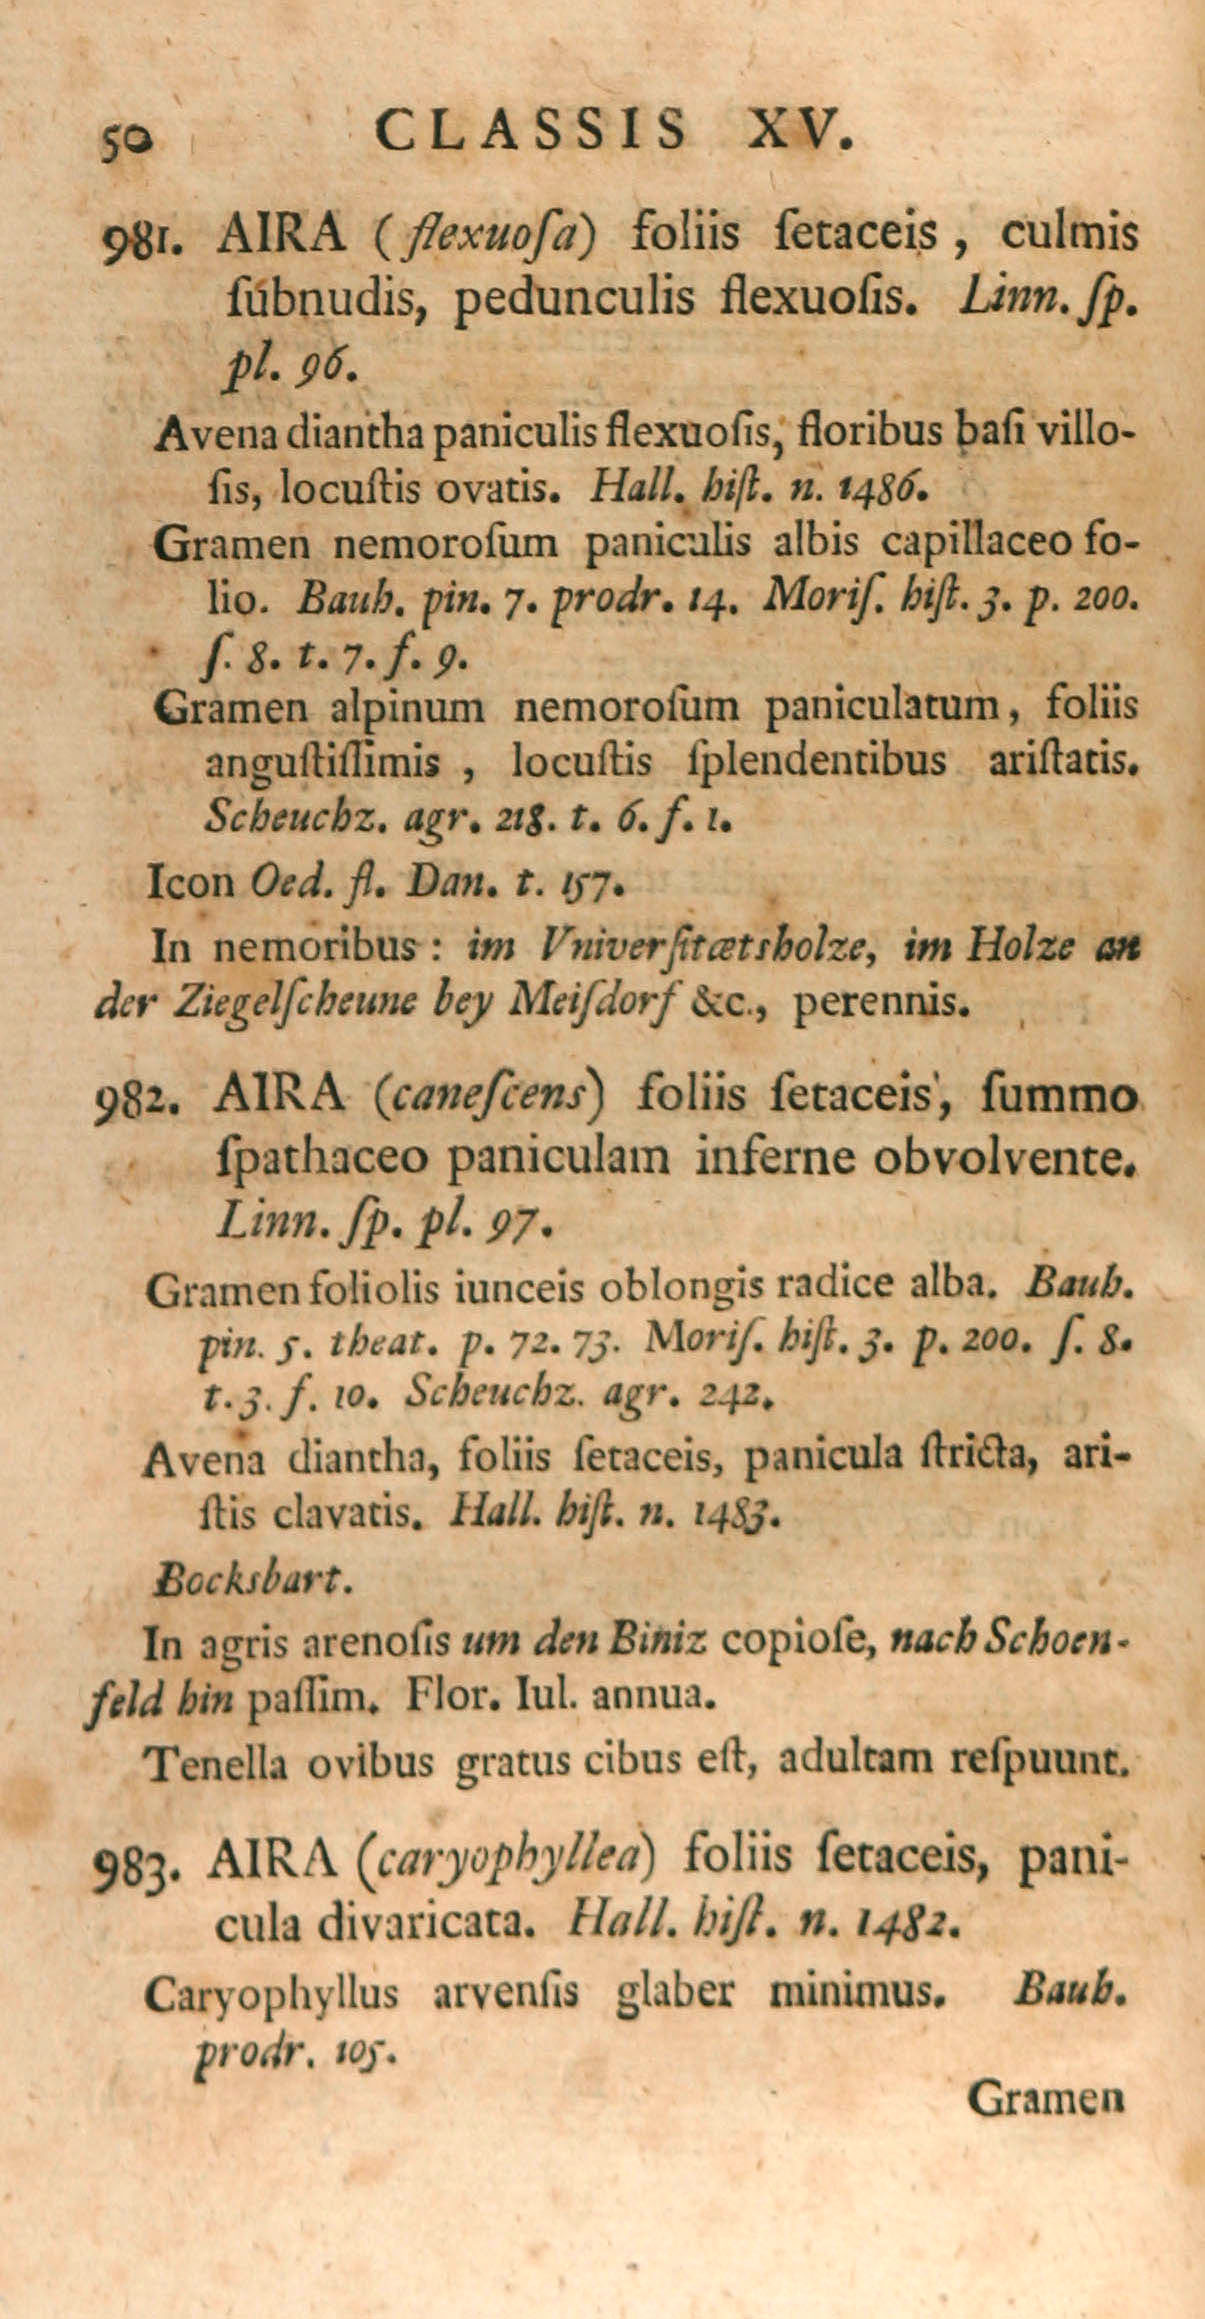 50 CLASSIS XV.
981. AIRA (flexuoſa) foliis ſetaceis, culmis
ſubnudis, pedunculis flexuoſis. Linn. ſp.
pl. 96.
Avena diantha paniculis flexuoſis, floribus baſi villo-
ſis, locuſtis ovatis. Hall. hiſt. n. 1486.
Gramen nemoroſum paniculis albis capillaceo fo-
lio. Bauh. pin. 7. prodr. 14. Moriſ. hiſt. 3. p. 200.
ſ. 8. t. 7. f. 9.
Gramen alpinum nemoroſum paniculatum, foliis
anguſtiſſimis, locuſtis ſplendentibus ariſtatis.
Scheuchz. agr. 218. t. 6. f. 1.
Icon Oed. fl. Dan. t. 157.
In nemoribus: im Vniverſitætsholze, im Holze an
der Ziegelſcheune bey Meiſdorf &c., perennis.
982. AIRA (caneſcens) foliis ſetaceis, ſummo
ſpathaceo paniculam inferne obvolvente.
Linn. ſp. pl. 97.
Gramen foliolis iunceis oblongis radice alba. Bauh.
pin. 5. theat. p. 72. 73. Moriſ. hiſt. 3. p. 200. ſ. 8.
t. 3. f. 10. Scheuchz. agr. 242.
Avena diantha, foliis ſetaceis, panicula ſtricta, ari-
ſtis clavatis. Hall. hiſt. n. 1483.
Bocksbart.
In agris arenoſis um den Biniz copioſe, nach Schoen-
feld hin paſſim. Flor. Iul. annua.
Tenella ovibus gratus cibus eſt, adultam reſpuunt.
983. AIRA (caryophyllea) foliis ſetaceis, pani-
cula divaricata. Hall. hiſt. n. 1482.
Caryophyllus arvenſis glaber minimus. Bauh.
prodr. 105.
Gramen